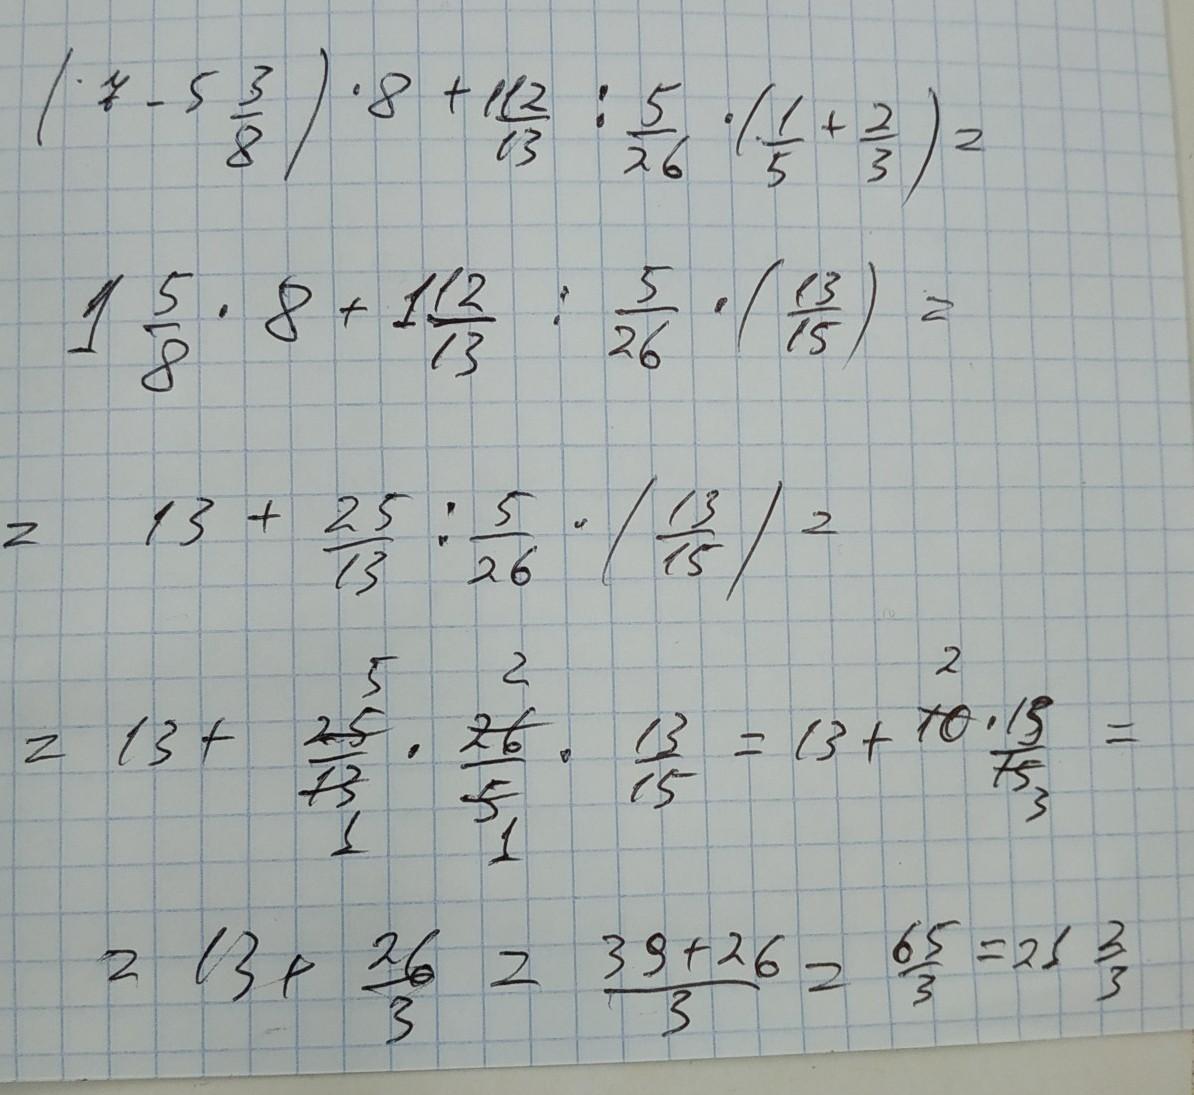 (7 - 5 3/8) · 8 + 1 12/13 : 5/26 · (1/5 + 2/3) =
1 5/8 · 8 + 1 12/13 : 5/26 · (13/15) =
= 13 + 25/13 : 5/26 · (13/15) =
= 13 + 25/13 · 26/5 · 13/15 = 13 + 10 · 13/15 =
= 13 + 26/3 = 39+26/3 = 65/3 = 21 2/3